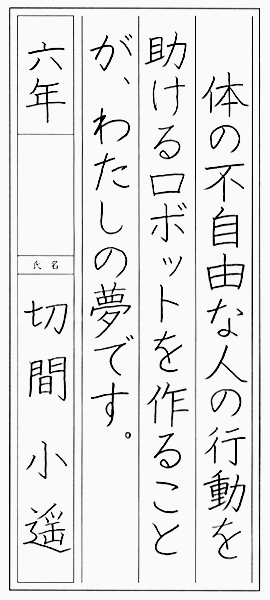 体の不自由な人の行動を
助けるロボットを作ること
が、わたしの夢です。
六年
氏名
切間小遥